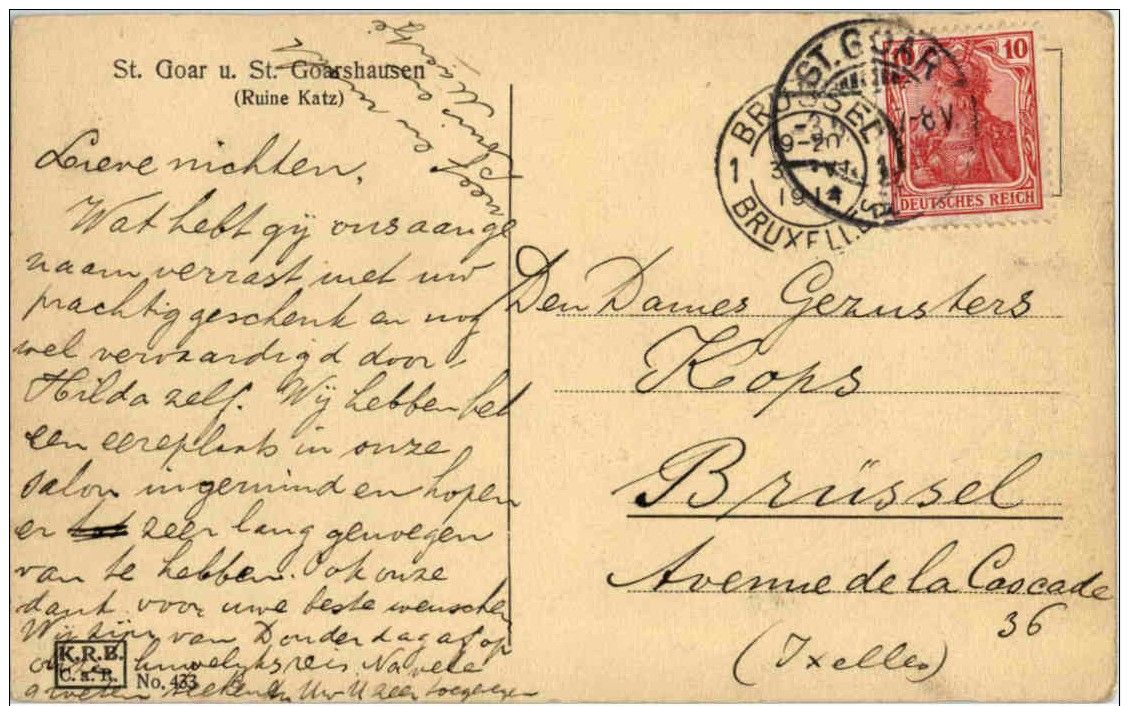 St. Goar u. St. Goarshausen
(Ruine Katz)
Lieve nichten,
Wat hebt gij ons aange
naam verrast met uw
prachtig geschenk en nog
wel vervaardigd door
Hilda zelf. Wij hebben het
een eereplaats in onze
salon ingeruimd en hopen
er zeer lang genoegen
van te hebben. ook onze
dank voor uwe beste wenschen
Wij zijn van Donderdag af op
huwelijksreis Na vele
groeten Uw U zeer toegenegen
neef en
K.R.B.
C. a. R.
No. 433
ST. GOAR
BRUSSEL
9-20
1 1
BRUXELLES
7-8 V.
10 10
DEUTSCHES REICH
Den Dames Gezusters
Kops
Brüssel
Avenue de la Cascade
36
(Ixelles)